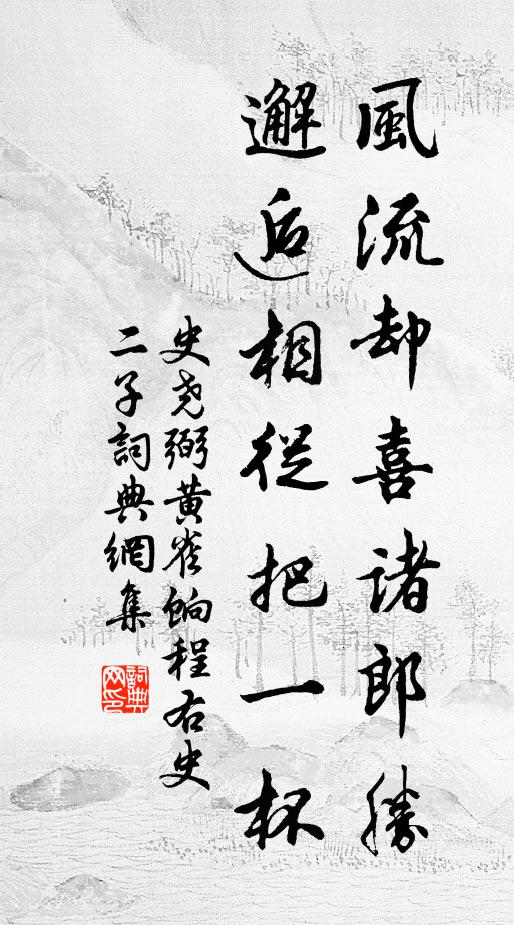 風流却喜諸郎勝
邂逅相從把一杯
史尧弼黄雀餉程右史
二子詞典網集
詞典网印